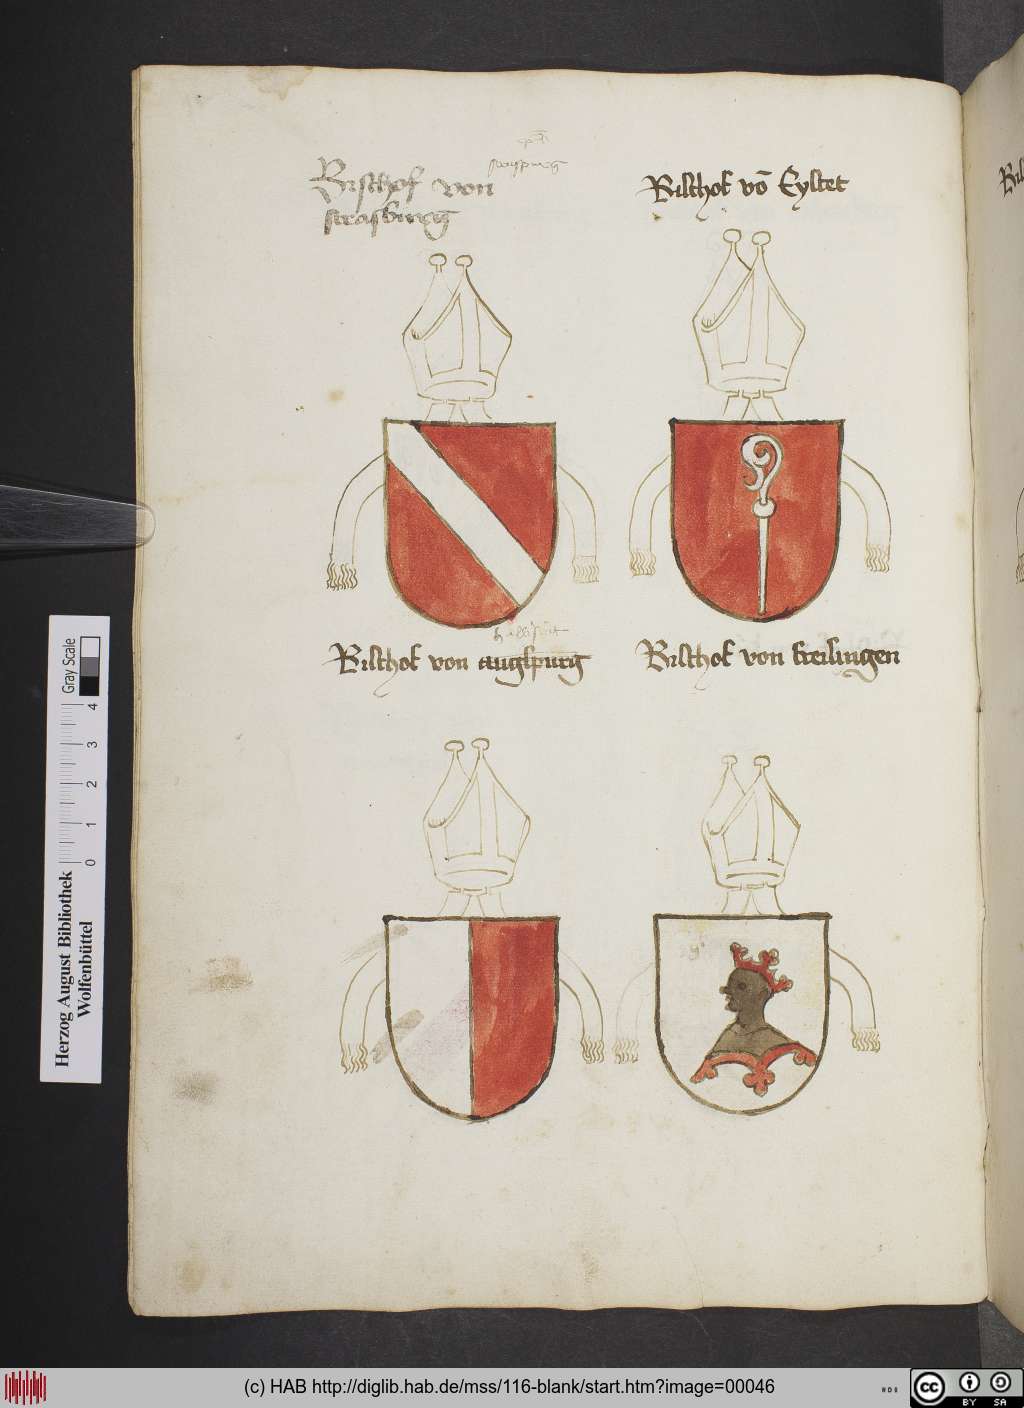 Bischof von
strasburg
straspurg
Bischof vō Eystet
Bischof von augspurg
Bischof von freisingen
Gray Scale
4
3
2
1
0
Herzog August Bibliothek
Wolfenbüttel
(c) HAB http://diglib.hab.de/mss/116-blank/start.htm?image=00046
cc
BY
SA